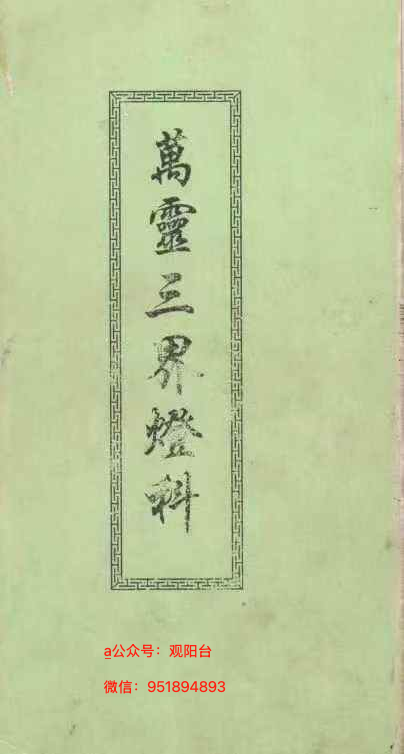 萬靈三界燈科
a公众号：观阳台
微信：951894893